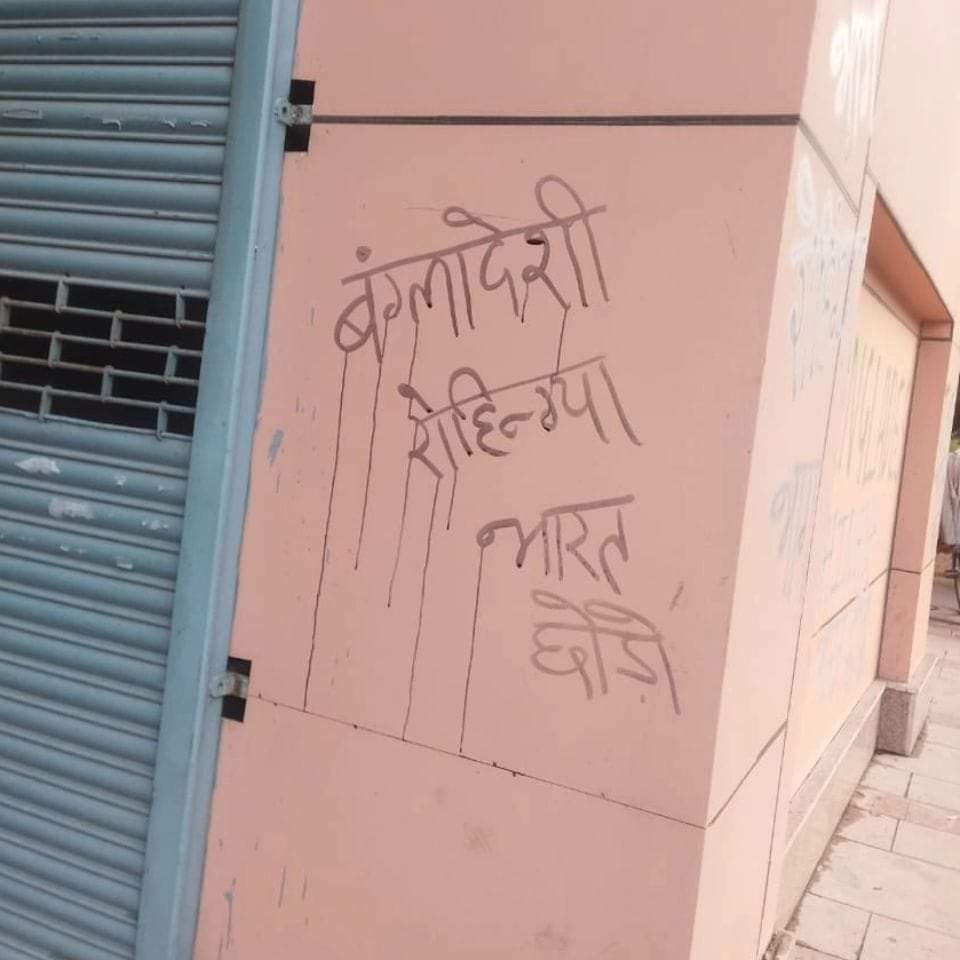 बंग्लादेशी
रोहिन्ग्या
भारत
छोड़ो